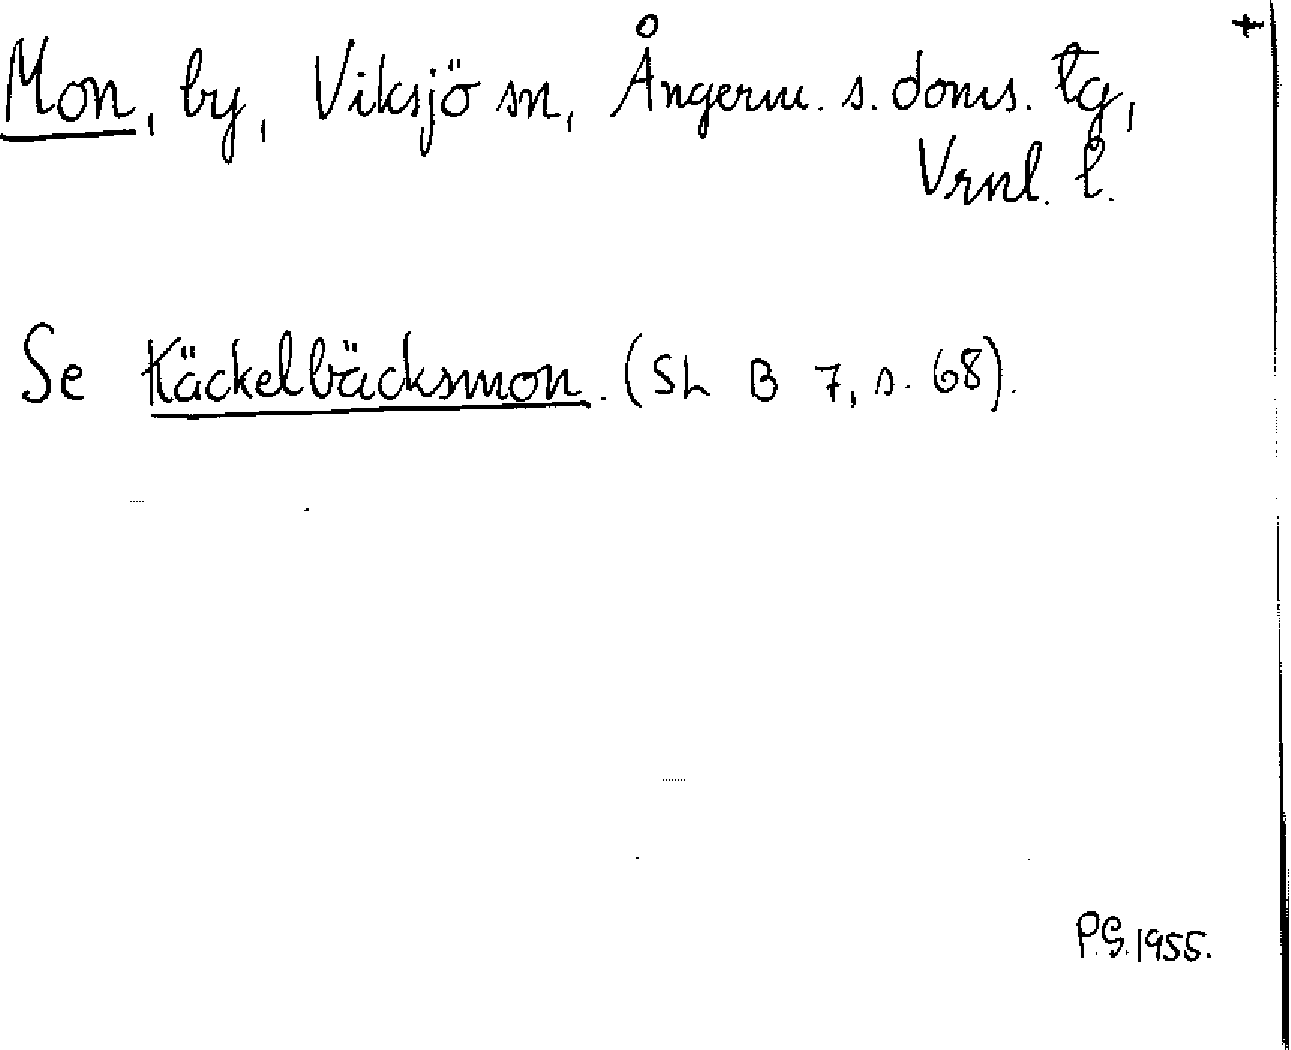 +
Mon, by, Viksjö sn, Ångerm. s. doms. tg,
Vrnl. l.
Se Käckelbäcksmon. (SL B 7, s. 68).
P.G. 1955.